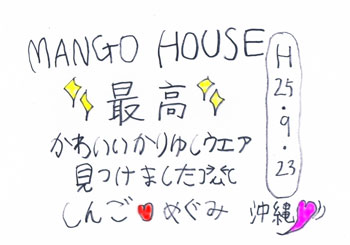 MANGO HOUSE
最高
かわいいかりゆしウエア
見つけました
しんご めぐみ 沖縄
H
25
・
9
・
23